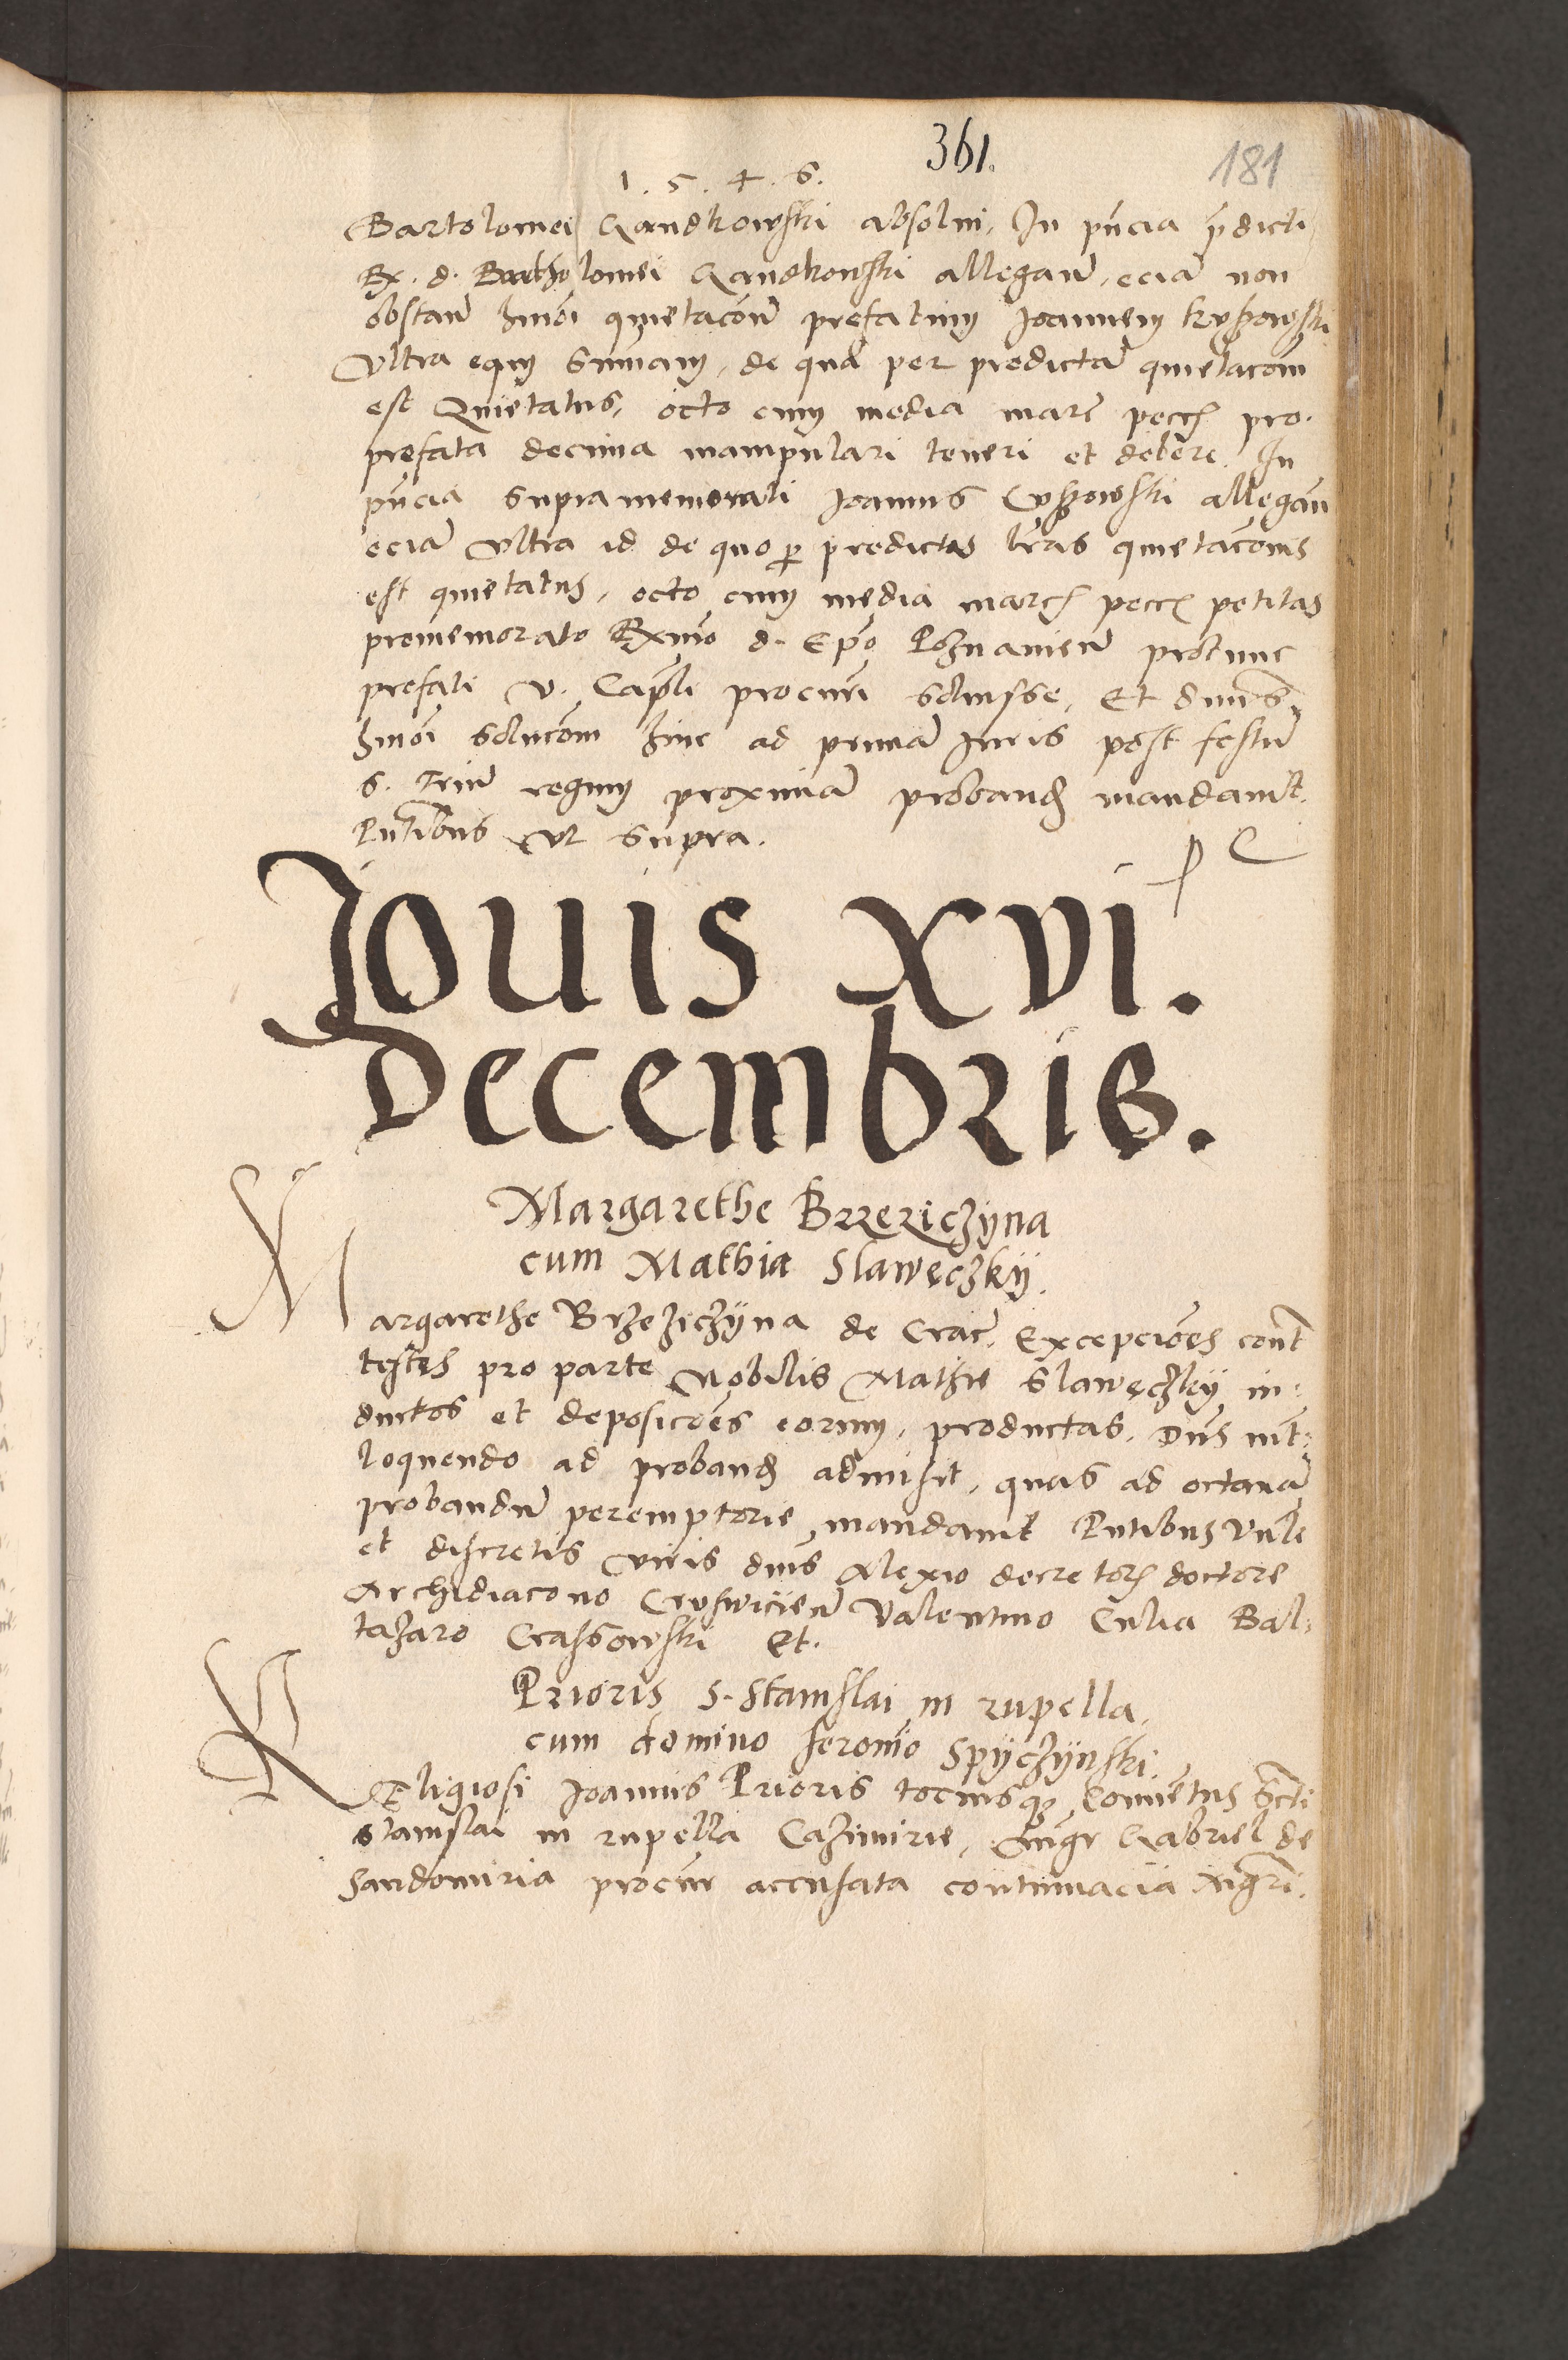 361.
181
1.5.4.6.
Bartolomei Gandkowski absolui, In pn̄cia p̄dicti
Rx. d. Bartholomei Gandkowski allegan̄, eciā non
obstan̄ hm̄oi quietacōn̄ prefatum Joannem
Vltra eam Summam, de qua per predictā quietacōm
est Quietatus, octo cum media marc̄ pecc̄ pro
prefata decima manipulari teneri et debere. In
pn̄cia supra memorati Joannis allegan̄
eciā Vltra id de quo p̄ predictas lr̄as quietacōnis
est quietatus, octo cum media marc̄ pecc̄ petitas
prememorato Rxmo d. Epō Poznanien̄ protunc
prefati V. Capl̄i procurī soluisse, Et dn̄us
hm̄oi solucōm hinc ad primā Juris post festū
S. Triū regum proximā proband̄ mandauit.
Pn̄tibus Vt supra.
Jouis XVI.
Decembris.
Margarethe Brzeziczyna
cum Mathia Slaweczky.
Margarethe Brzeziczÿna de Crac̄. Excepciōes cont̄
testes pro parte Nobilis Mathie Slaweczkÿ in-
ductos et deposiciōes eorum, productas, Dn̄s int̄-
loquendo ad proband̄ admisit, quas ad octauā
probandū peremptorie mandauit Pn̄tibus Vn̄le
et discretis viris dn̄is Alexio decretor̄ doctore
Archidiacono Crusvicien̄ Valentino Culia Bal-
tazaro Crassowski Et.
Prioris S. Stanislai in rupella,
cum domino Ieronimo Spÿczÿnski.
Religiosi Joannis Prioris tociusq̨ Conuētus Sc̄ti
Stanislai in rupella Casimirie, Gabriel de
Sandomiria procur̄ accusata contumacia